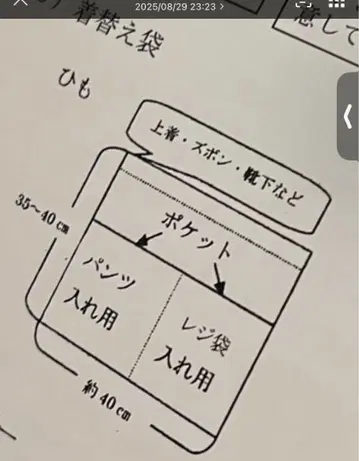 2025/08/29 23:23
着替え袋
ひも
上着・ズボン・靴下など
35～40㎝
ポケット
パンツ
入れ用
レジ袋
入れ用
約40㎝